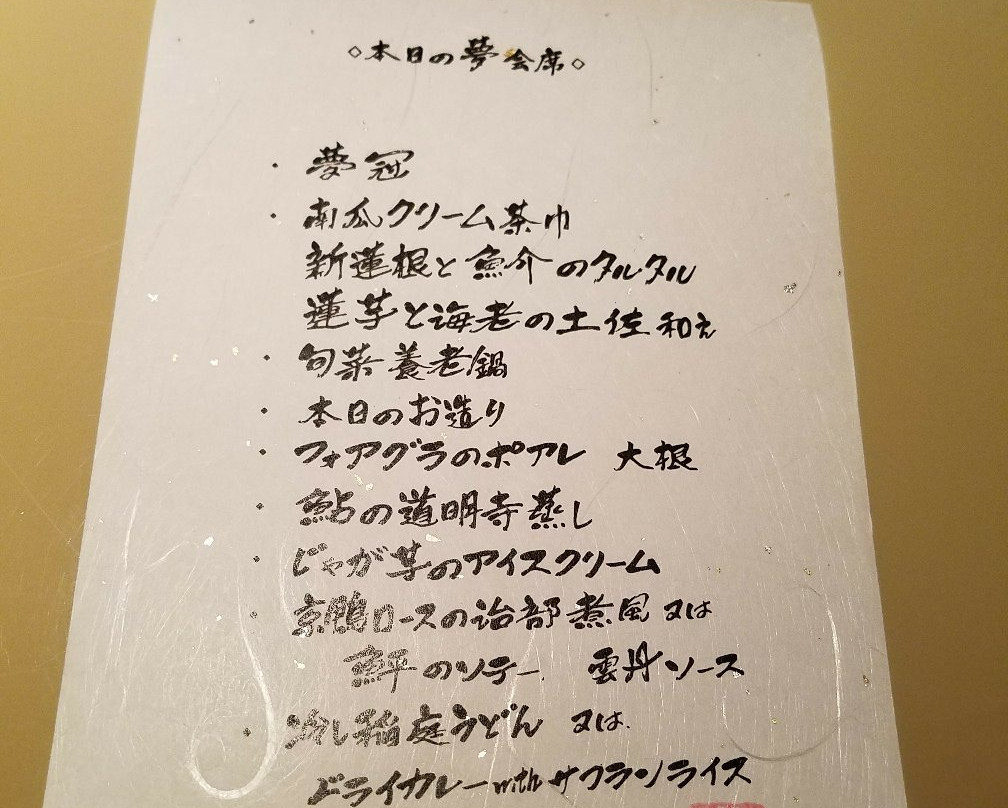 ◇本日の夢会席◇
・夢冠
・南瓜クリーム茶巾
新蓮根と魚介のタルタル
蓮芋と海老の土佐和え
・旬菜養老鍋
・本日のお造り
・フォアグラのポアレ 大根
・鮎の道明寺蒸し
・じゃが芋のアイスクリーム
・京鴨ロースの治部煮風 又は
のソテー 雲丹ソース
・冷し稲庭うどん 又は
ドライカレーwithサフランライス